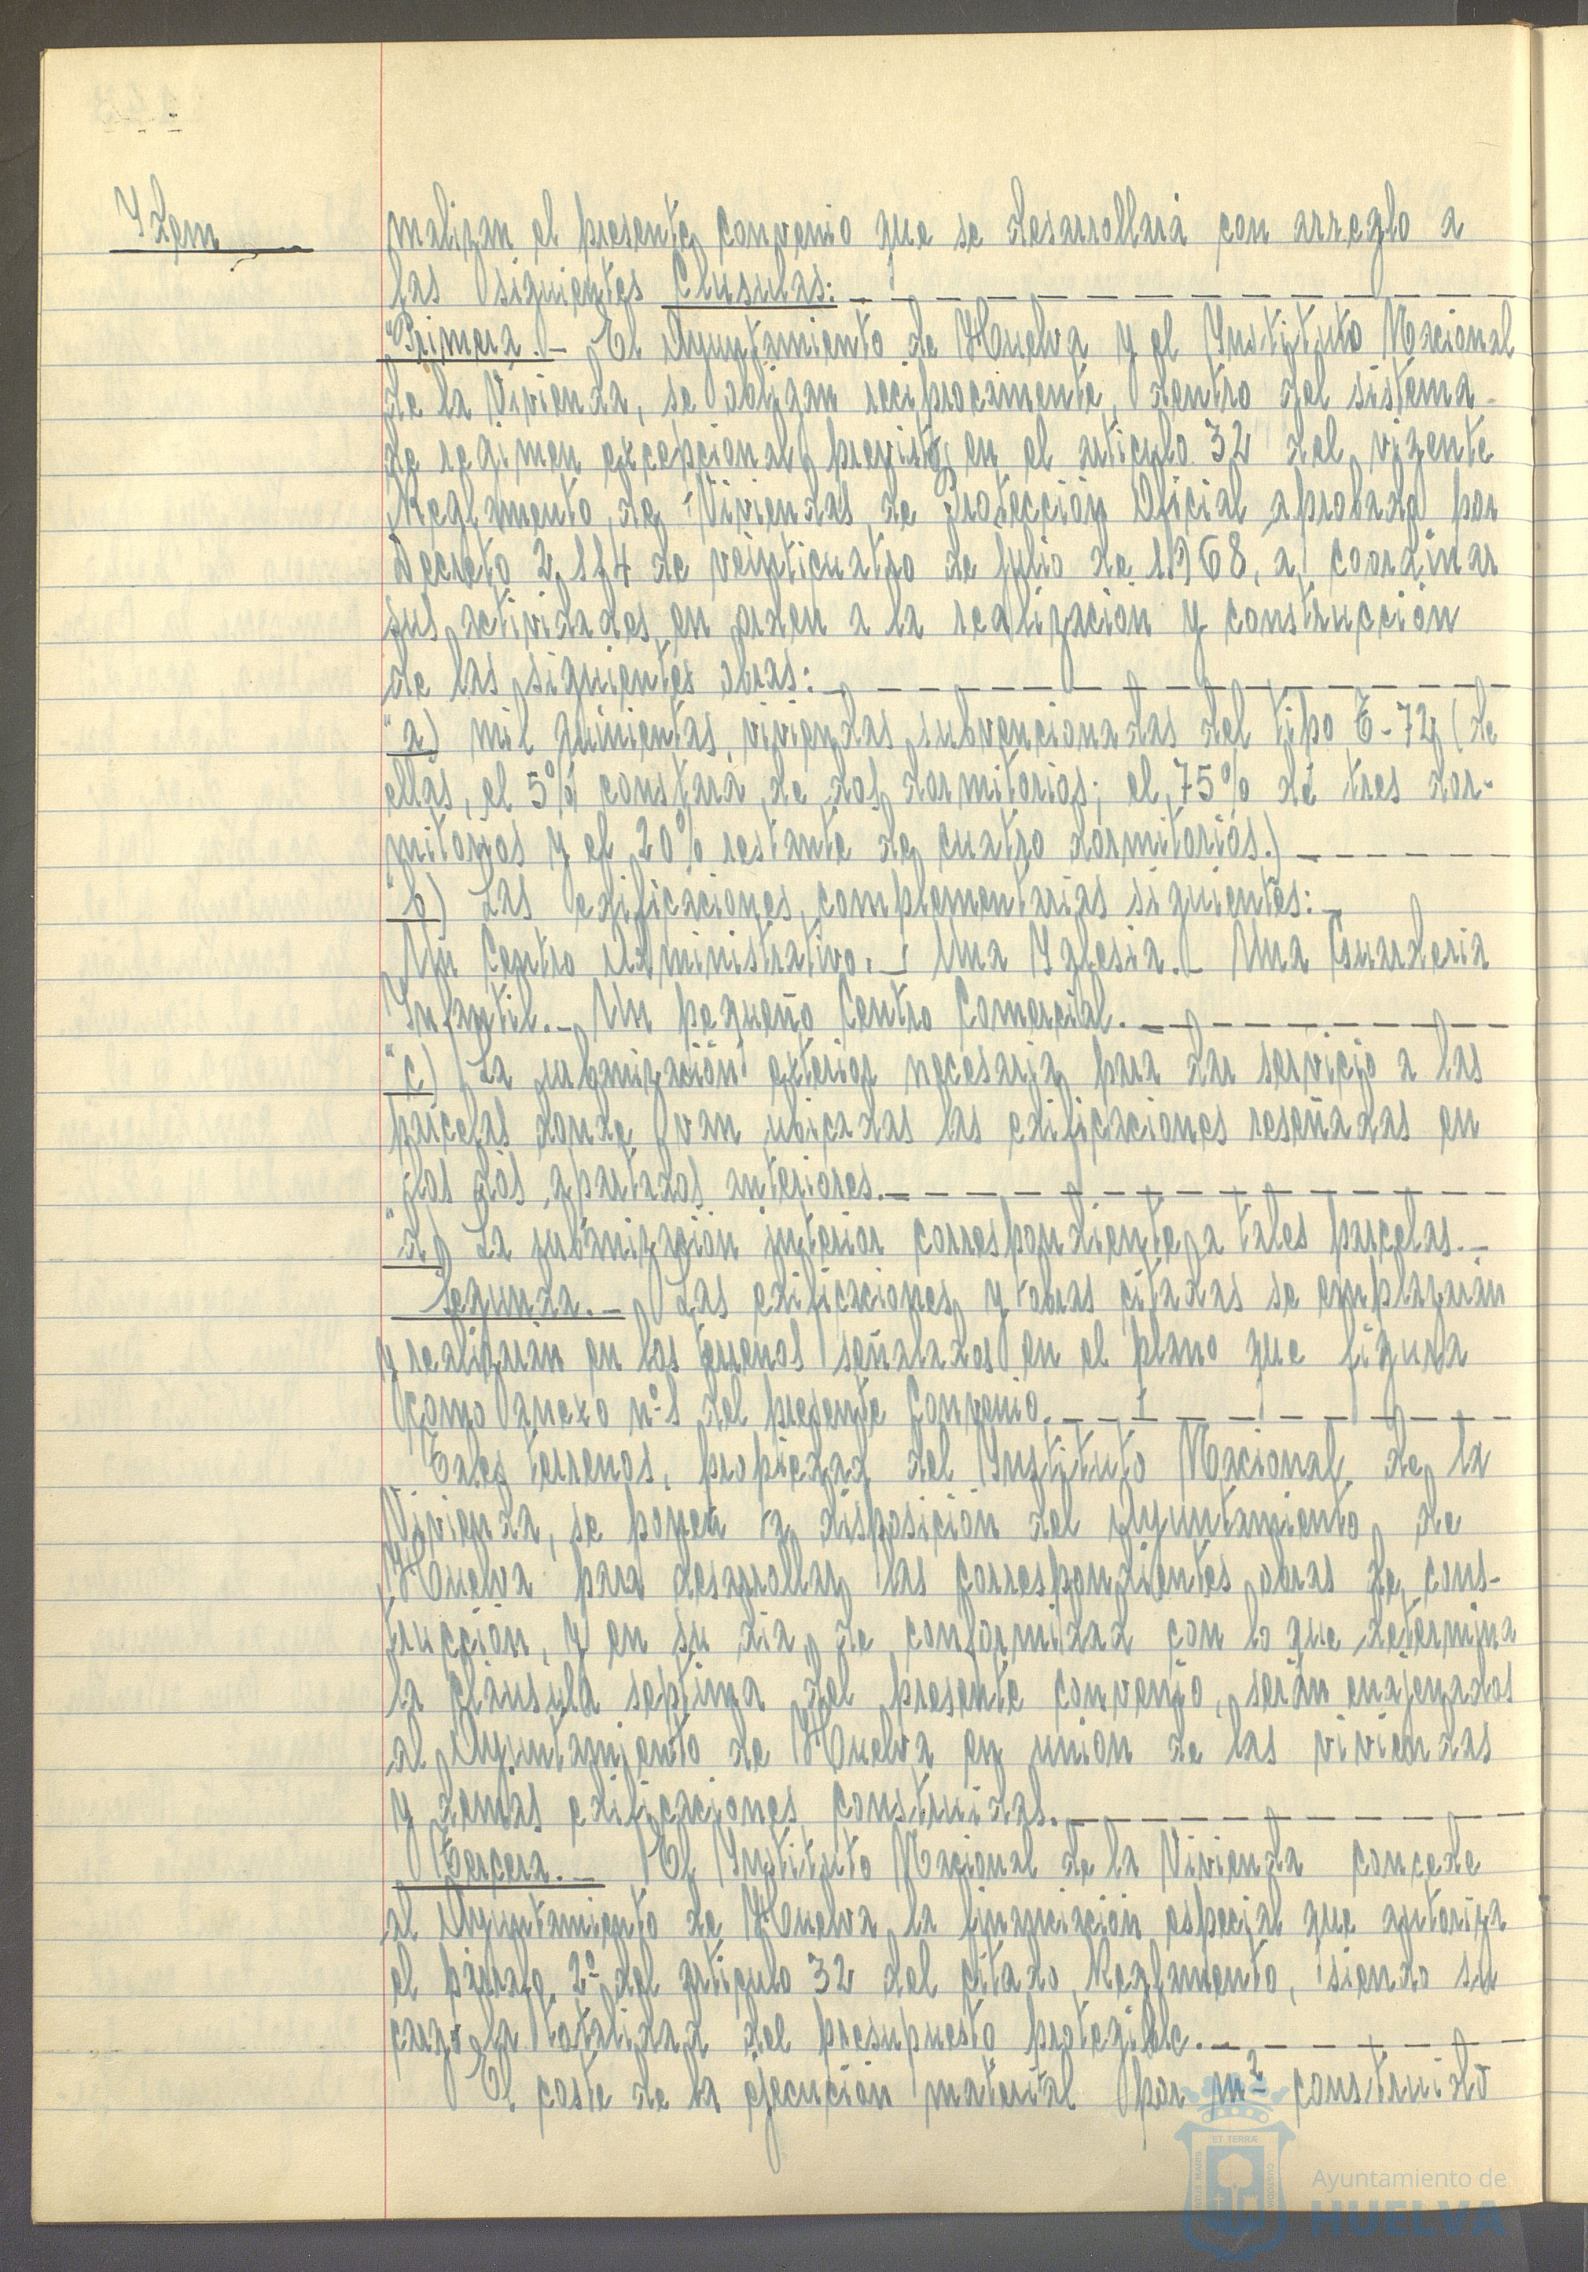 Idem
malizan el presente convenio que se desarrollará con arreglo a
las siguientes Clusulas:
"Primera.- El Ayuntamiento de Huelva y el Instituto Nacional
de la Vivienda, se obligan reciprocamente, dentro del sistema
de regimen excepcional previsto en el articulo 32 del vigente
Reglamento de Viviendas de Protección Oficial aprobado por
Decreto 2.114 de veinticuatro de julio de 1968, a coordinar
sus actividades en orden a la realización y construcción
de las siguientes obras:
"a) mil quinientas viviendas subvencionadas del tipo E-72 (de
ellas, el 5% constará de dos dormitorios; el 75% de tres dor-
mitorios y el 20% restante de cuatro dormitorios.)
"b) Las edificaciones complementarias siguientes:
Un Centro Administrativo.- Una Iglesia.- Una Guarderia
Infantil.- Un pequeño Centro Comercial.
"c) La urbanización exterior necesaria para dar servicio a las
parcelas donde van ubicadas las edificaciones reseñadas en
los dos apartados anteriores.
"d) La urbanización interior correspondiente a tales parcelas.-
Segunda.- Las edificaciones y obras citadas se emplazarán
y realizarán en los terrenos señalados en el plano que figura
como anexo nº 1 del presente Convenio.
Tales terrenos, propiedad del Instituto Nacional de la
Vivienda, se ponen a disposición del Ayuntamiento de
Huelva para desarrollar las correspondientes obras de cons-
trucción, y en su dia, de conformidad con lo que determina
la cláusula septima del presente convenio, serán enajenados
al Ayuntamiento de Huelva en union de las viviendas
y demas edificaciones construidas.
Tercera.- El Instituto Nacional de la Vivienda concede
al Ayuntamiento de Huelva la financiación especial que autoriza
el párrafo 2º del articulo 32 del citado Reglamento, siendo su
cargo la totalidad del presupuesto protegible.
El coste de la ejecución material por m² construido
ET TERRÆ
Ayuntamiento de
HUELVA